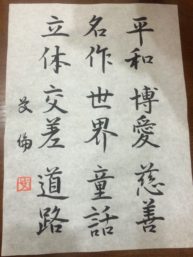 平和博愛慈善
名作世界童話
立体交差道路